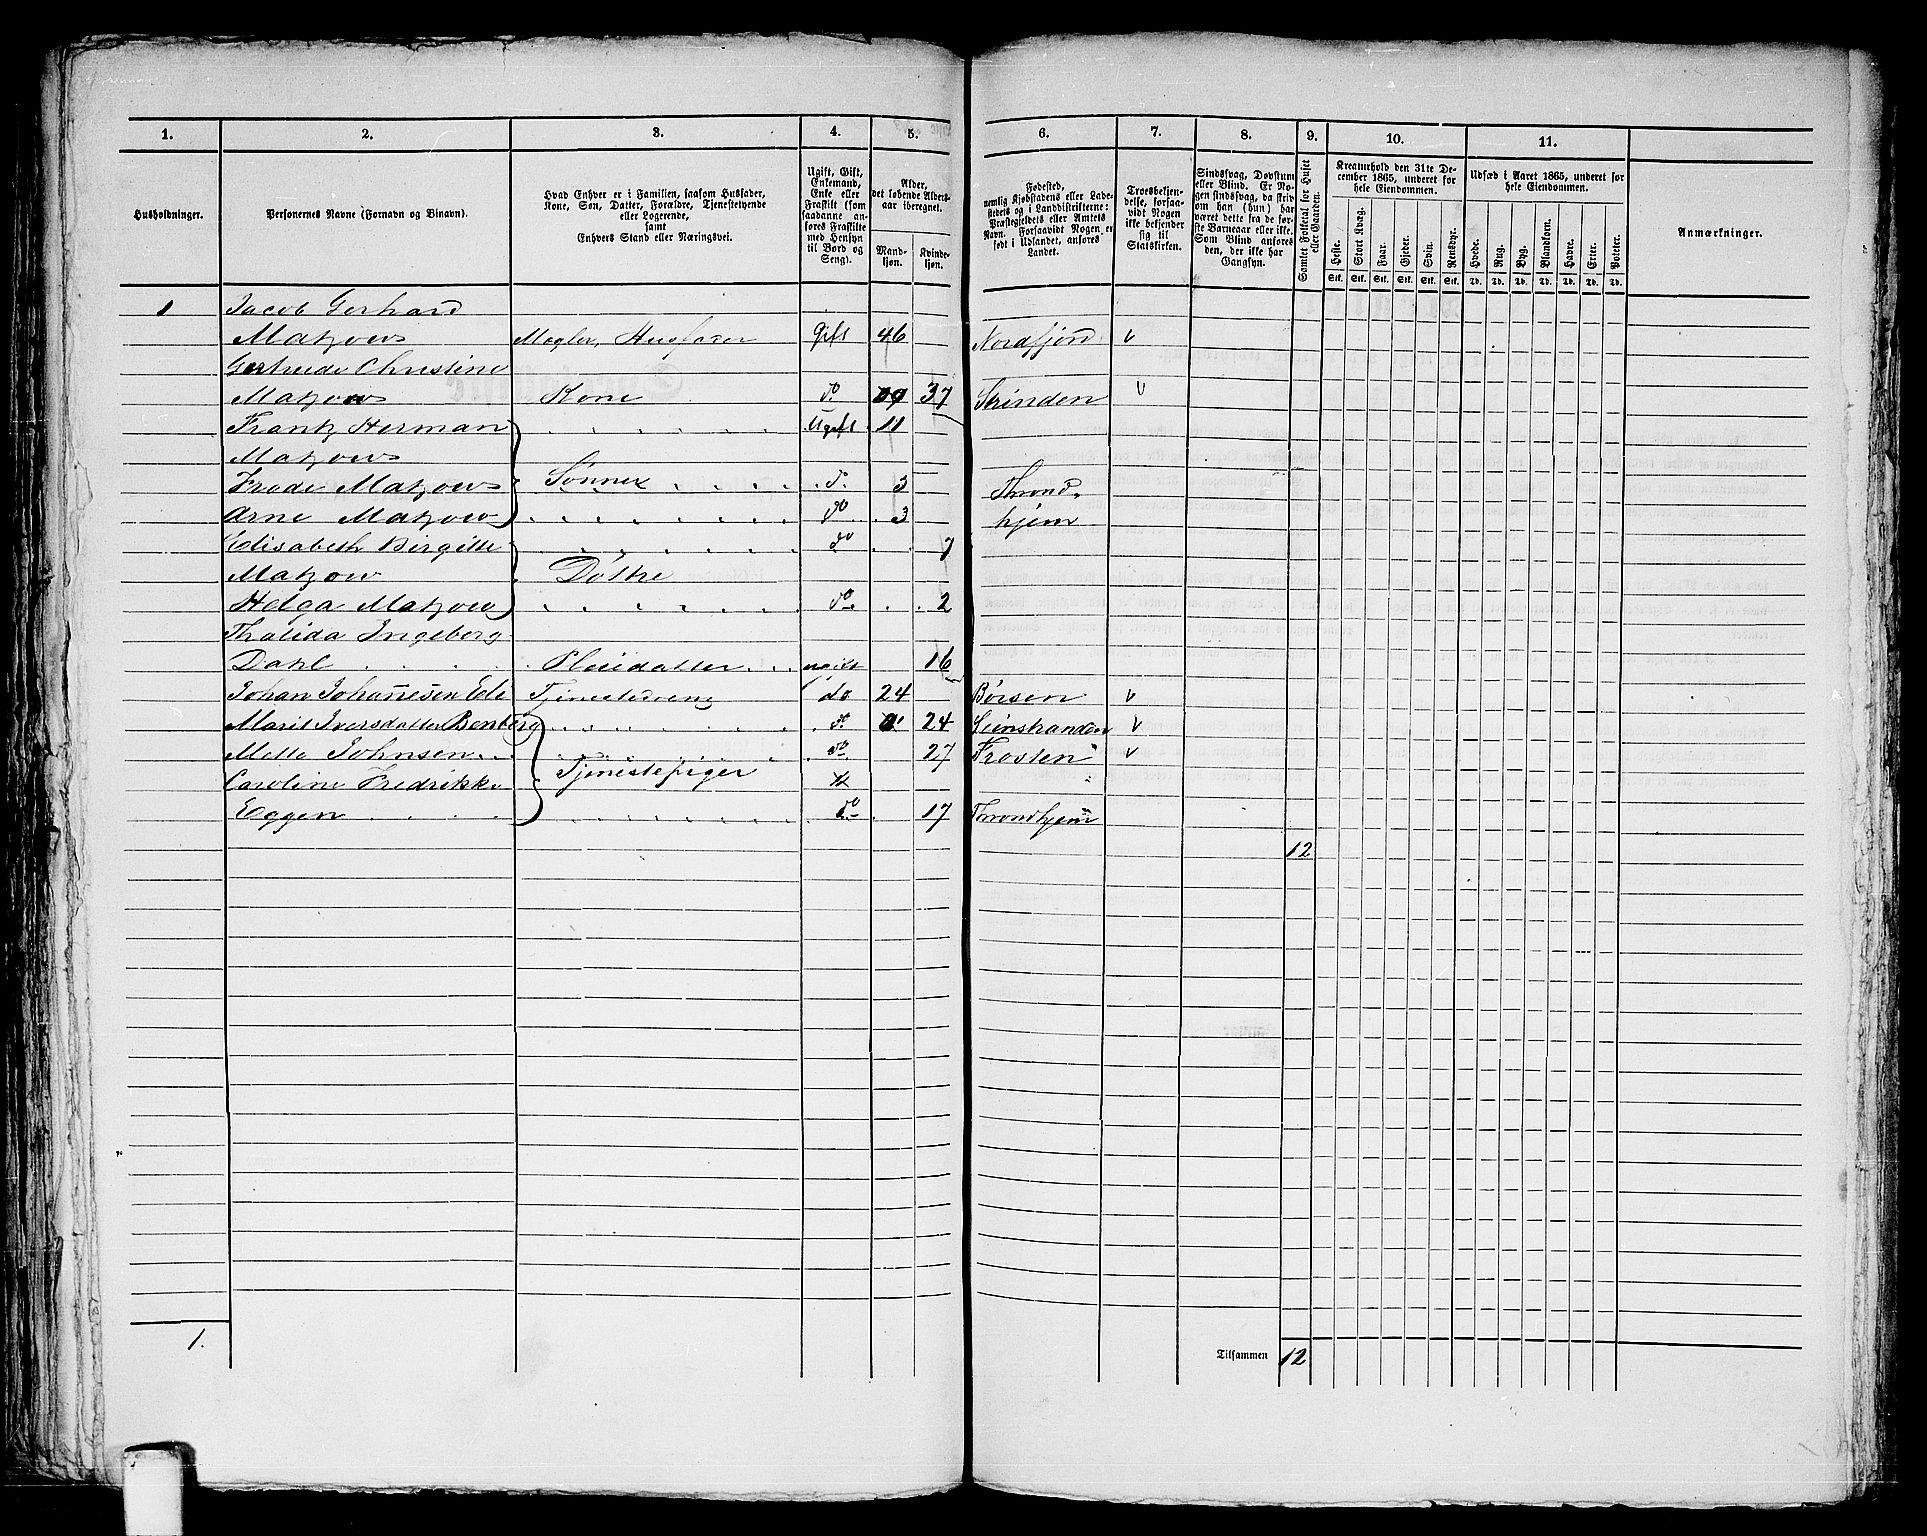 1. 2. 3. 4. 5. 6. 7. 8. 9. 10. 11.
Husholdninger.
Personernes Navne (Fornavn og Binavn).
Hvad Enhver er i Familien, saasom Husfader,
Kone, Søn, Datter, Forældre, Tjenestetyende
eller Logerende,
samt
Enhvers Stand eller Næringsvei.
Ugift, Gift,
Enkemand,
Enke eller
Fraskilt (som
saadanne an-
føres Fraskilte
med Hensyn
til Bord og
Seng).
Alder,
det løbende Alders-
aar iberegnet.
Mand-
kjøn.
Kvinde-
kjøn.
Fødested,
nemlig Kjøbstadens eller Lade-
stedets og i Landdistrikterne:
Præstegjeldets eller Amtets
Navn. Forsaavidt Nogen er
født i Udlandet, anføres
Landet.
Troesbekjen-
delse, forsaa-
vidt Nogen
ikke bekjender
sig til
Statskirken.
Sindssvag, Døvstum
eller Blind. Er No-
gen sindssvag, da skriv
om han (hun) har
været dette fra de før-
ste Barneaar eller ikke.
Som Blind ansøres
den, der ikke har
Gangsyn.
Samlet Folketal for Huset
eller Gaarden.
Kreaturhold den 31te De-
cember 1865, underet for
hele Eiendommen.
Heste. Stort Kvæg. Faar. Gjeder. Svin. Rensdyr.
Stk. Stk. Stk. Stk. Stk. Stk.
Udsæd i Aaret 1865, underet for
hele Eiendommen.
Hvede. Rug. Byg. Blandkorn. Havre. Erter. Poteter.
Td. Td. Td. Td. Td. Td. Td.
Anmærkninger.
1 Jacob Gerhard
Matzow Mægler, Husfader Gift 46 Nordfjord v
Gertrude Christine
Matzow Kone do 37 Strinden v
Frantz Herman Ugift 11
Matzow
Frode Matzow Sønner do 3 Thrond-
Arne Matzow do 3 hjem
Elisabeth Birgitte do 7
Matzow Døtre
Helga Matzow do 2
Thalida Ingeborg
Dahl Pleiedatter ugift 16
Johan Johannesen Ele Tjenestedreng do 24 Børsen v
Marit Iversdatter Benberg do 24 Leinstranden v
Mette Johnsen do 27 Frosten v
Caroline Fredrikke Tjenestepiger
Eggen do 17 Throndhjem
12
1.
Tilsammen 12